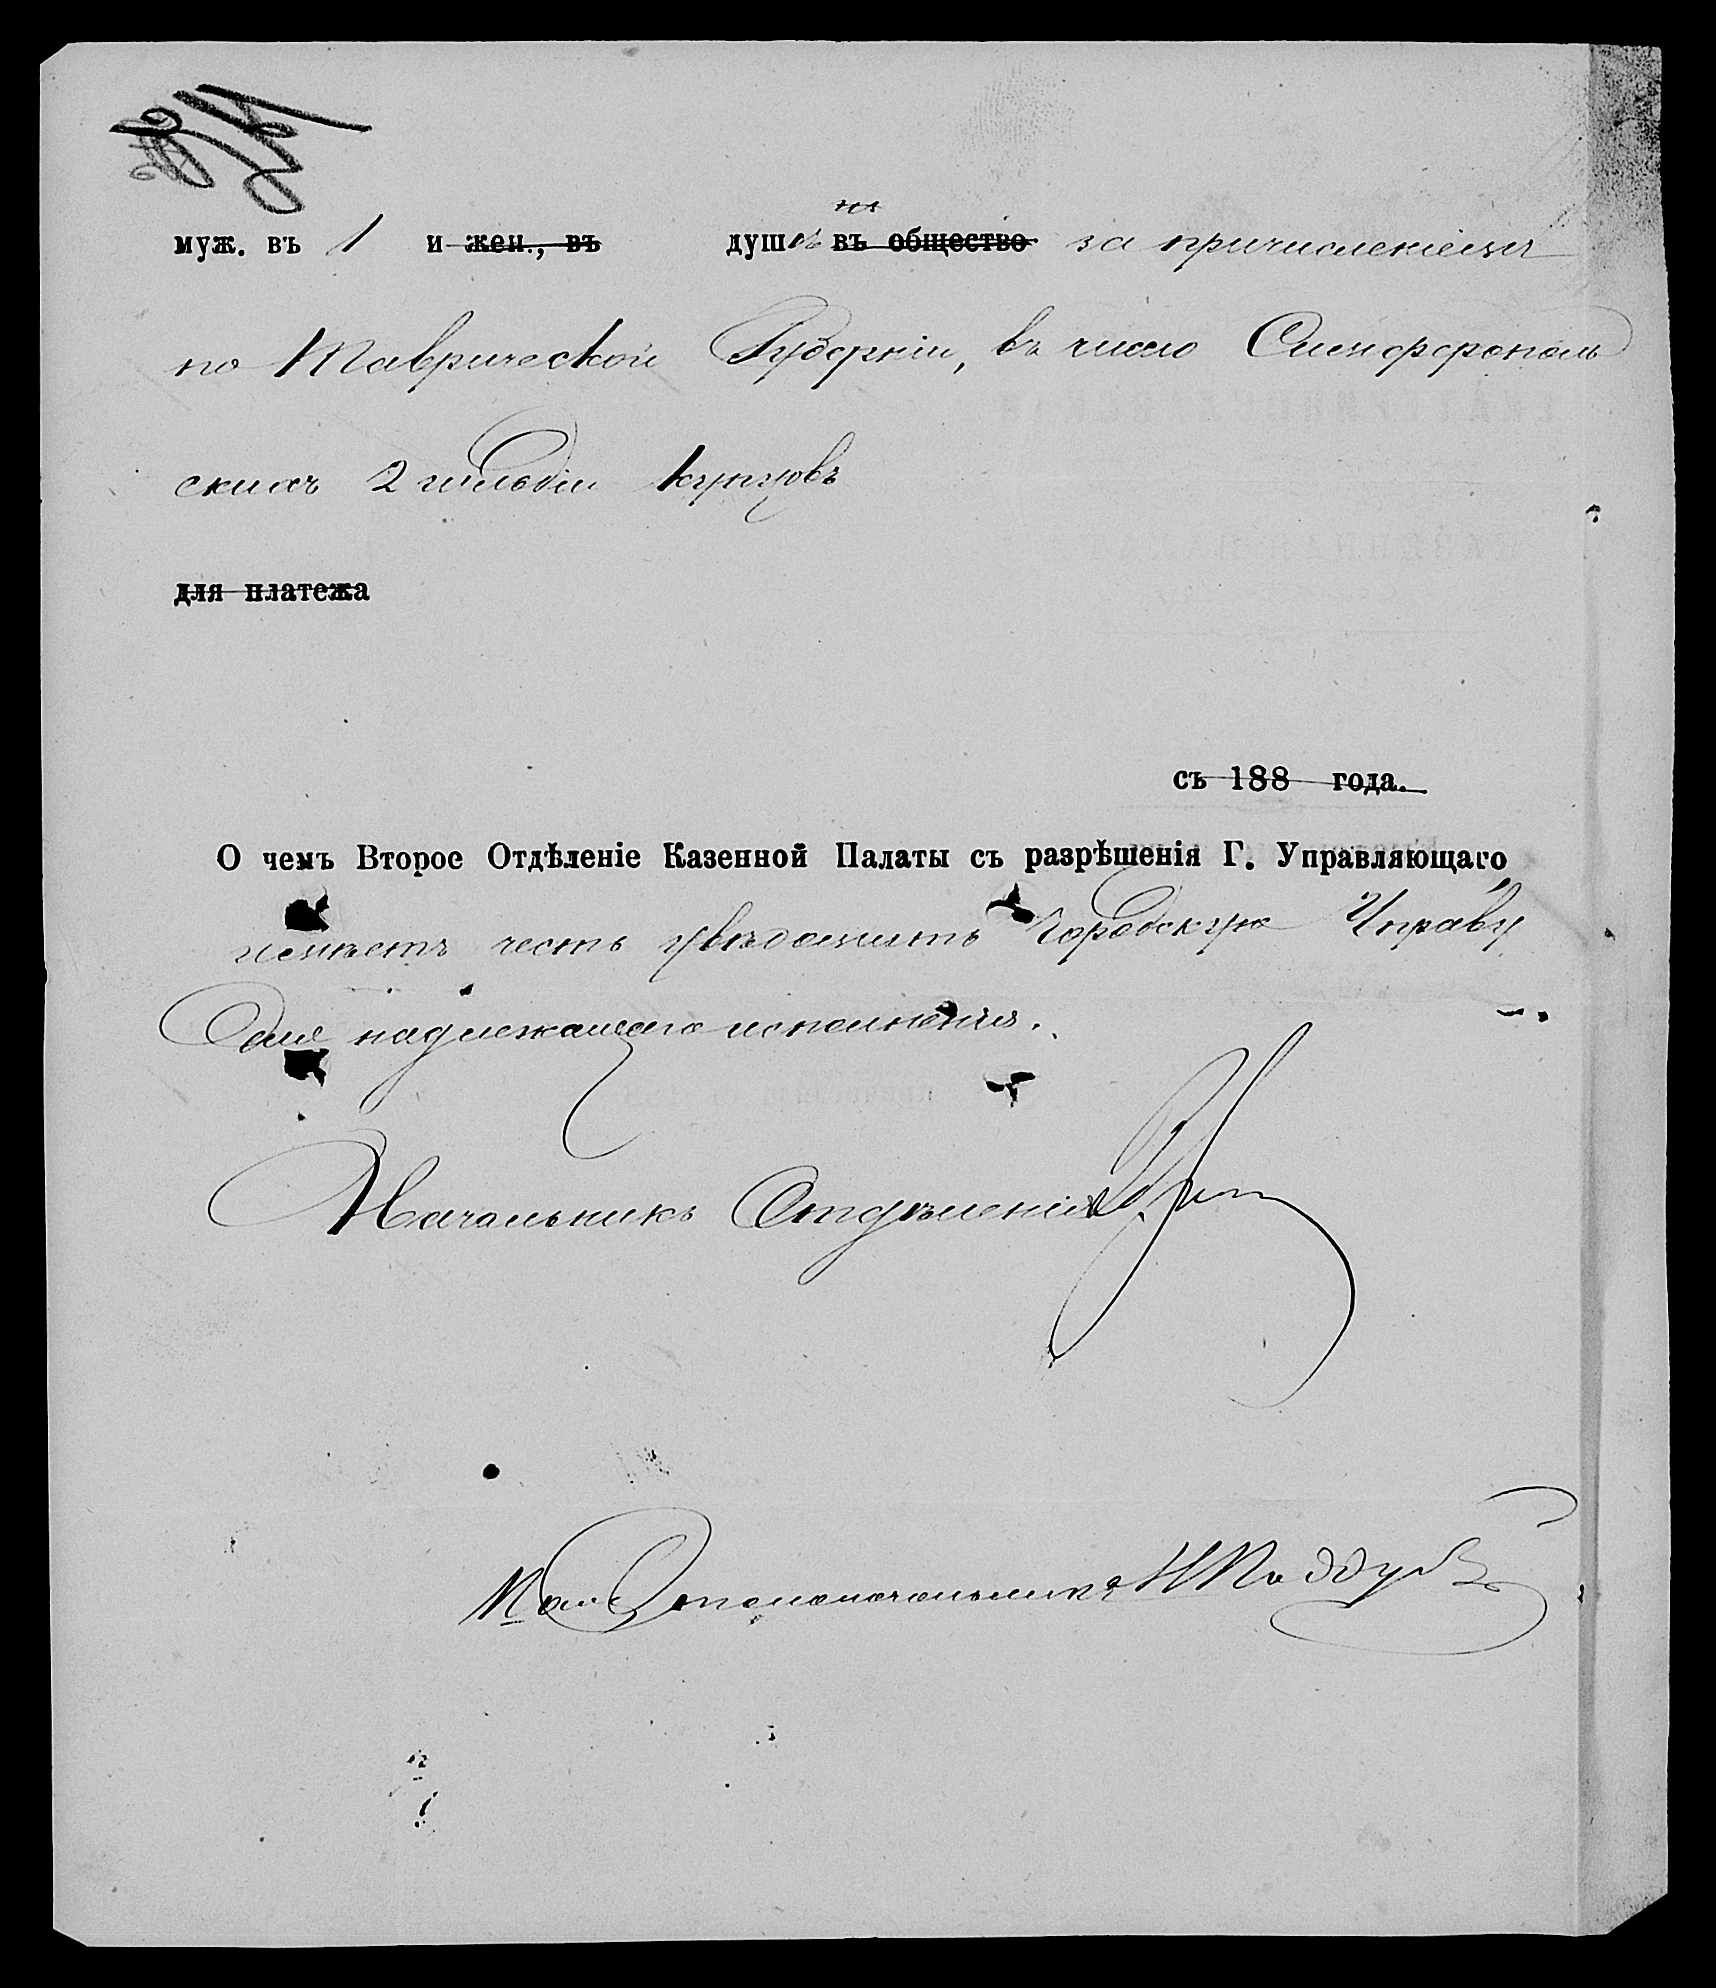 муж. въ 1 и жен., въ душѣ въ общество за причисленіемъ
по Таврической Губерніи, въ число Симферополь
скихъ 2 гильдіи купцовъ
для платежа
съ 188 года.
О чемъ Второе Отдѣленіе Казенной Палаты съ разрѣшенія Г. Управляющаго
имѣетъ честь увѣдомить Городскую Управу
для надлежащаго исполненія.
Начальникъ Отдѣленія
Пом. Столоначальника Н Поддуб